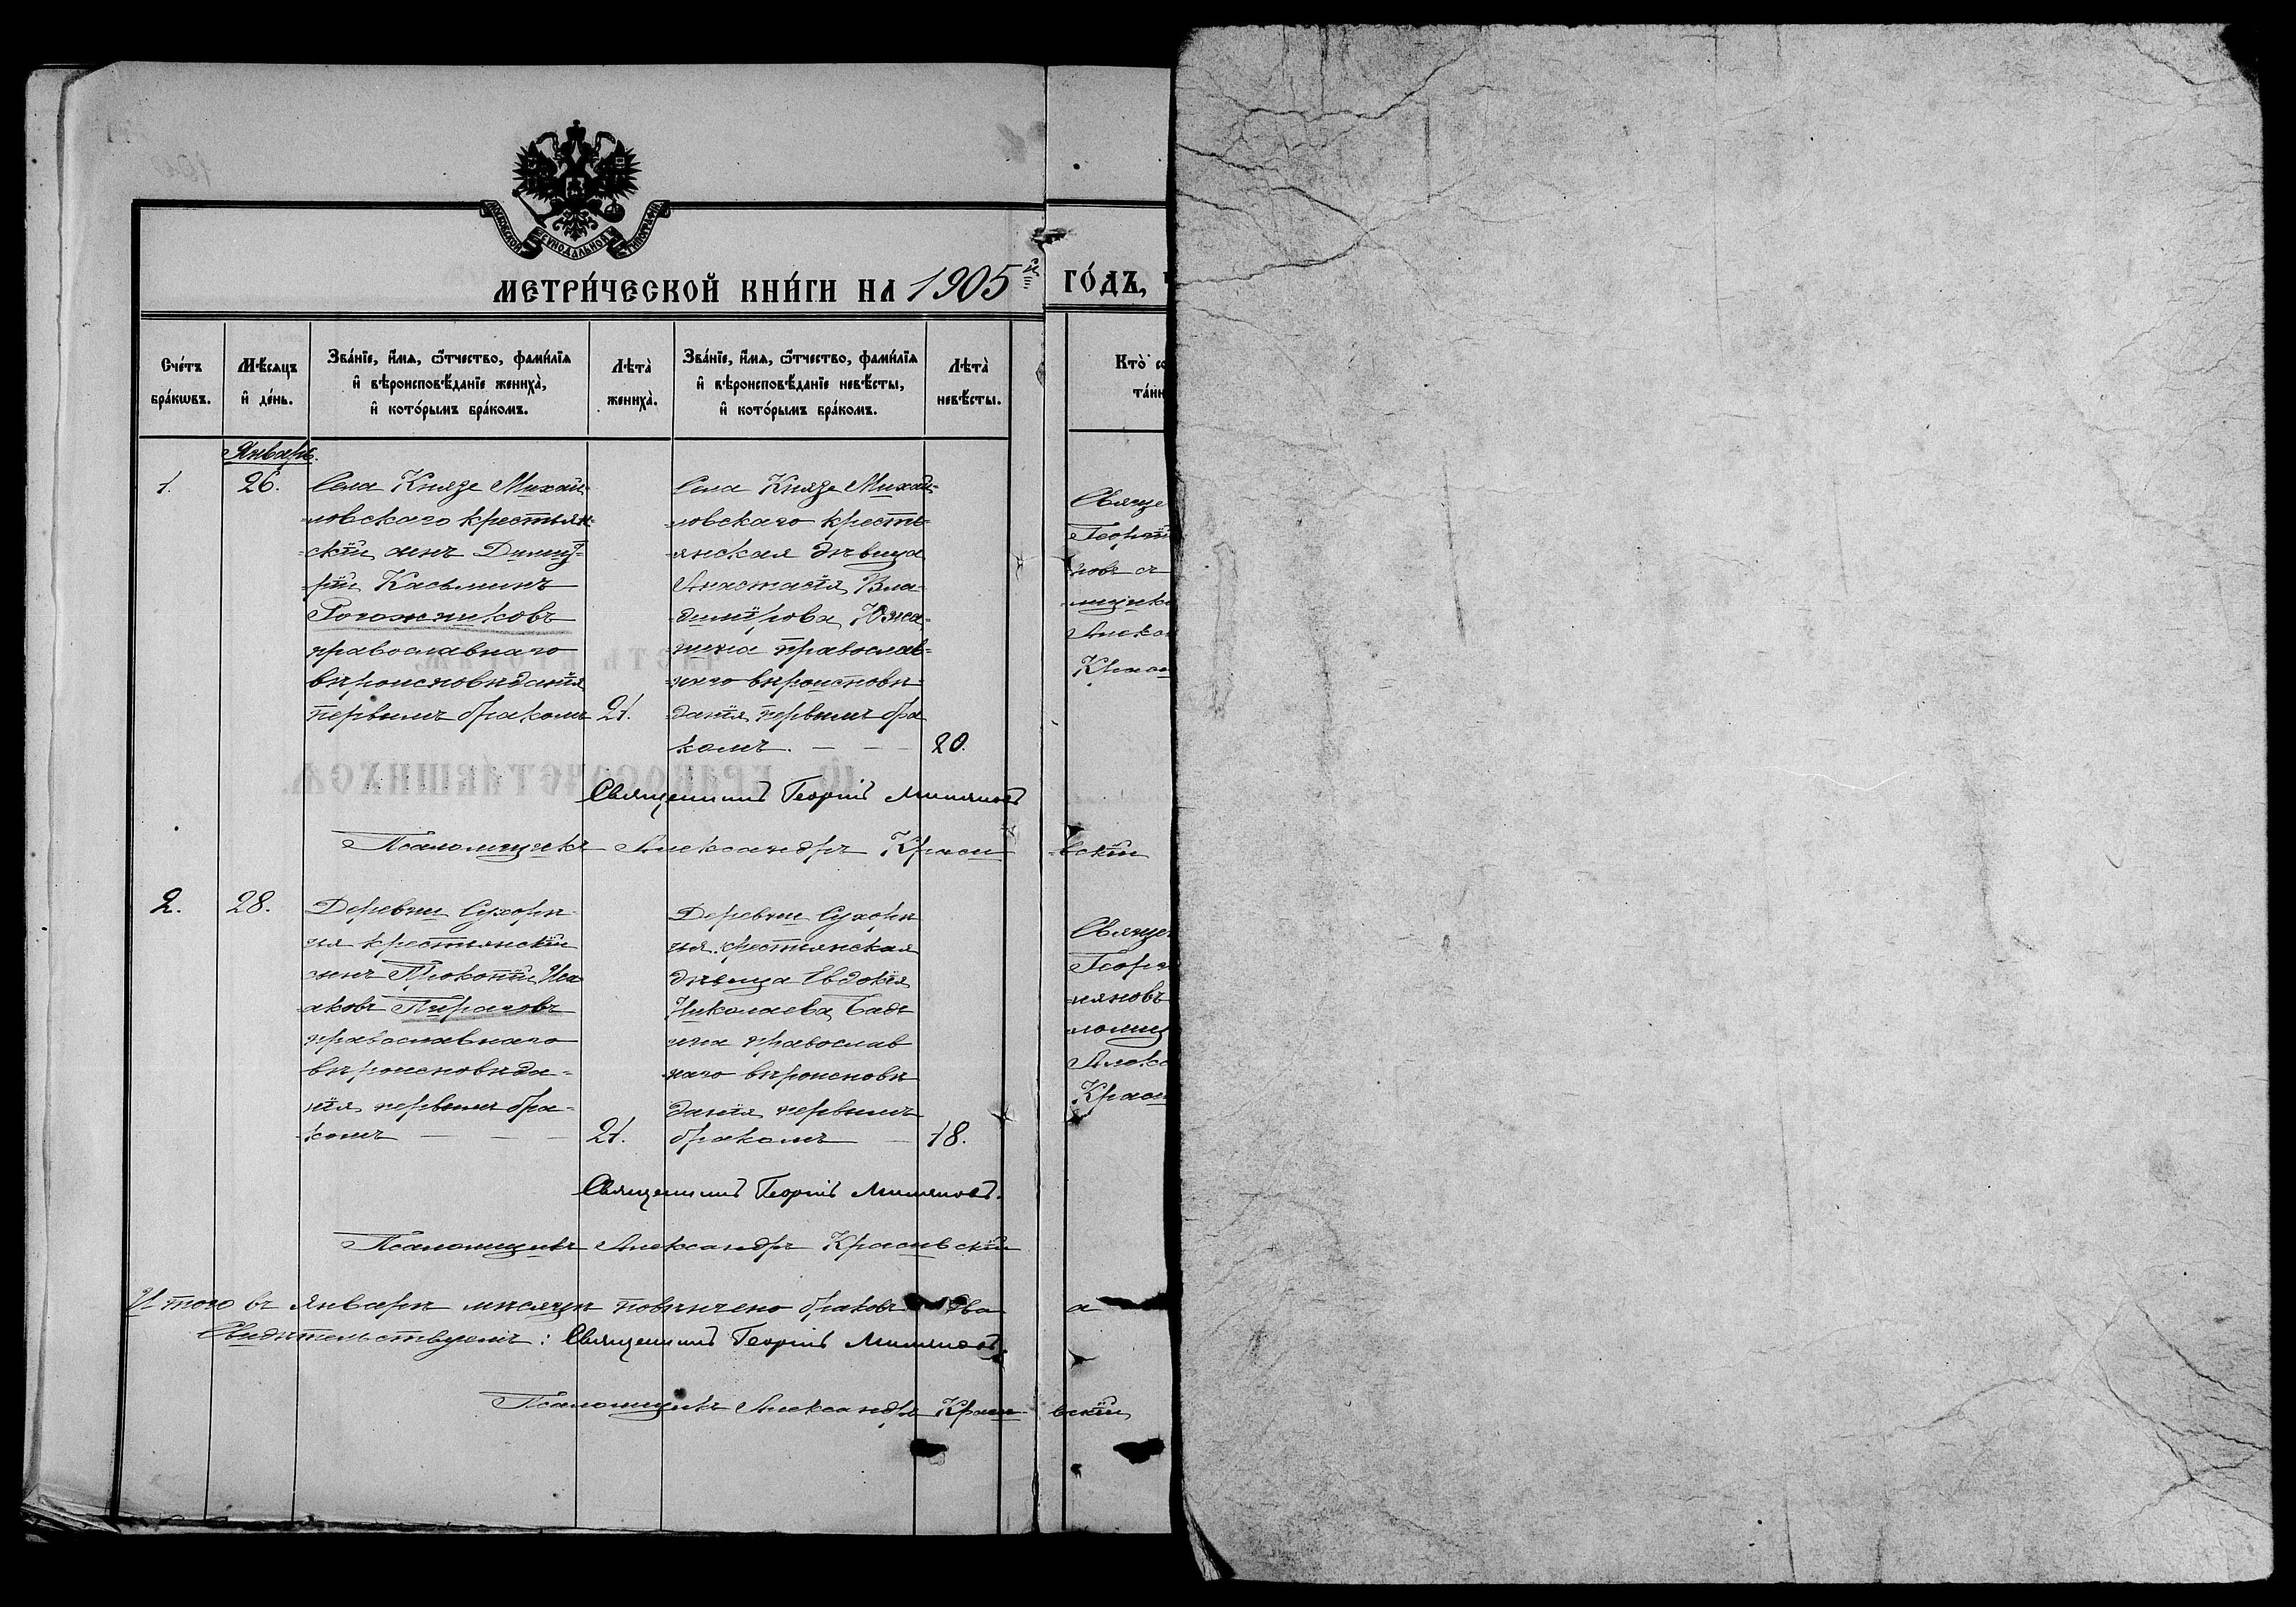 МОСКОВСКОЙ СѴНОДАЛЬНОЙ ТИПОГРАФІИ
МЕТРИ́ЧЕСКОЙ КНИ́ГИ НА 1905й ГО́ДЪ,
Сче́тъ бра́кѡвъ.
Мѣ́сяцъ и҆ де́нь.
Зва́нїе, и҆́мѧ, ѻ҆́тчество, фами́лїѧ
и҆ вѣроисповѣ́данїе жениха̀,
и҆ кото́рымъ бра́комъ.
Лѣта̀ жениха̀.
Зва́нїе, и҆́мѧ, ѻ҆́тчество, фами́лїѧ
и҆ вѣроисповѣ́данїе невѣ́сты,
и҆ кото́рымъ бра́комъ.
Лѣта̀ невѣ́сты.
Кто̀ со
та́ин
Январь.
1.
26.
Села Князе Михай-
-ловскаго крестьян-
-скій сынъ Дими-
-трій Касьминъ
Рогожниковъ
православнаго
вѣроисповѣданія
первымъ бракомъ
21.
Села Князе Михай-
-ловскаго кресть-
-янская дѣвица
Анастасія Вла-
-димірова
православ-
-наго вѣроисповѣ-
-данія первымъ бра
комъ. — —
20.
Свяще
Георгій
-новъ съ
Алекса
Краси
Священникъ Георгій
Псаломщикъ Александръ Краси-вскій
2.
28.
Деревни Сухорѣ-
чья крестьянскій
сынъ Прокопій Иса
-аковъ Пираговъ
православнаго
вѣроисповѣда-
-нія первымъ бра-
-комъ — — —
21.
Деревни Сухорѣ
чья крестьянская
дѣвица Евдокія
Николаева
православ
наго вѣроисповѣ
данія первымъ
бракомъ —
18.
Священ
Георгі
-няновъ
-ломщ
Алекса
Краси
Священникъ Георгій
Псаломщикъ Александръ Красивскій
Итого въ Январѣ мѣсяцѣ повѣнчено браковъ два
Свидѣтельствуемъ: Священникъ Георгій
Псаломщикъ Александръ Краси-вскій